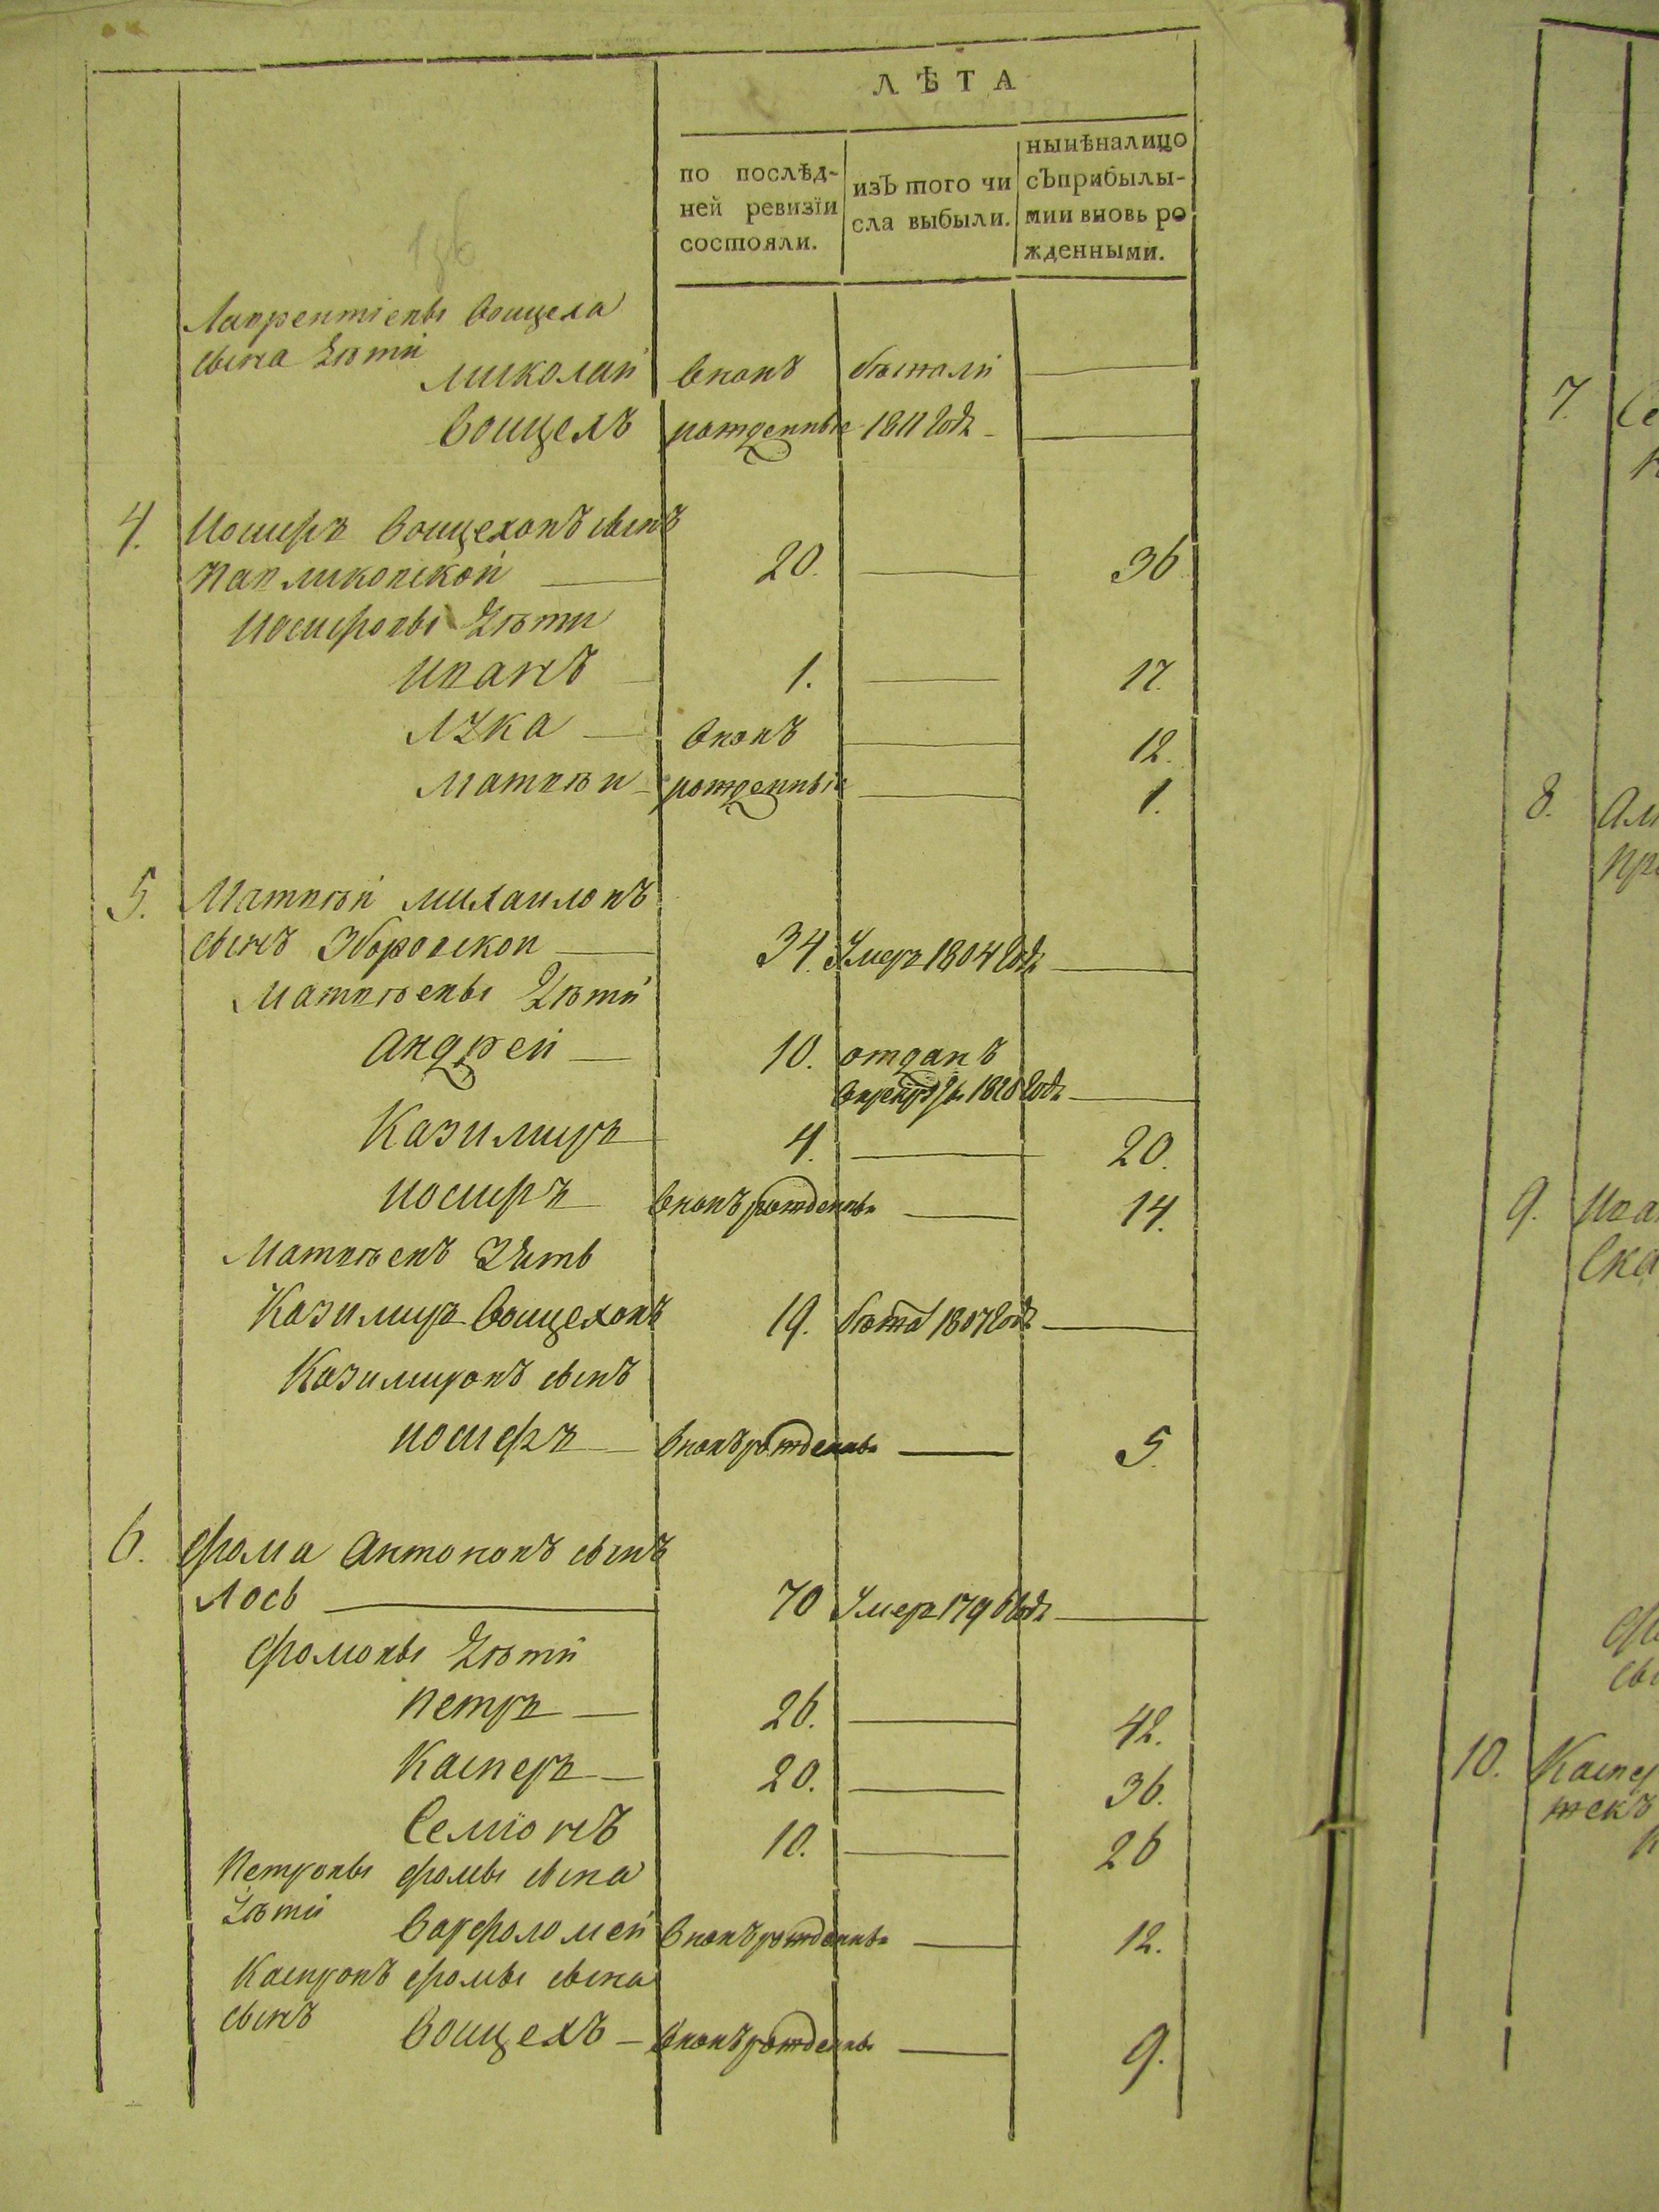 ЛѢТА
по послѣд-
ней ревизїи
состояли.
изЪ того чи
сла выбыли.
нынѣналицо
сЪприбылы-
мии вновь ро
жденными.
Лаврентіевы Воицеха
сына дѣти
Николай вновЪ бѣжали
ВоицехЪ рожденные 1811 годȣ
4. Иосифъ ВоицеховЪ сынЪ
Павликовской 20. 36
Иосифовы дѣти
ИванЪ 1. 17.
Лȣка вновЪ 12.
Матвѣй рожденные 1.
5. Матвѣй МихаиловЪ
сынЪ Зборовской 34. ȣмеръ 1804 годȣ
Матвѣевы дѣти
Андрей 10. отданЪ
1808 годȣ
Казимиръ 4. 20.
Иосифъ вновЪ рожденны 14.
МатвѣевЪ зять
Казимиръ ВоицеховЪ 19. 1807 годȣ
КазимировЪ сынЪ
Иосифъ вновЪ рожденны 5.
6. Фома АнтоновЪ сынЪ
Лось 70 ȣмеръ 1796 годȣ
Фомовы дѣти
Петръ 26. 42.
Касперъ 20. 36.
СеміонЪ 10. 26
Петровы Фомы сына
дѣти
Варфоломей вновЪ рожденны 12.
КаспровЪ Фомы сына
сынЪ
ВоицехЪ вновЪ рожденны 9.
7.
8.
9.
10. Каспер